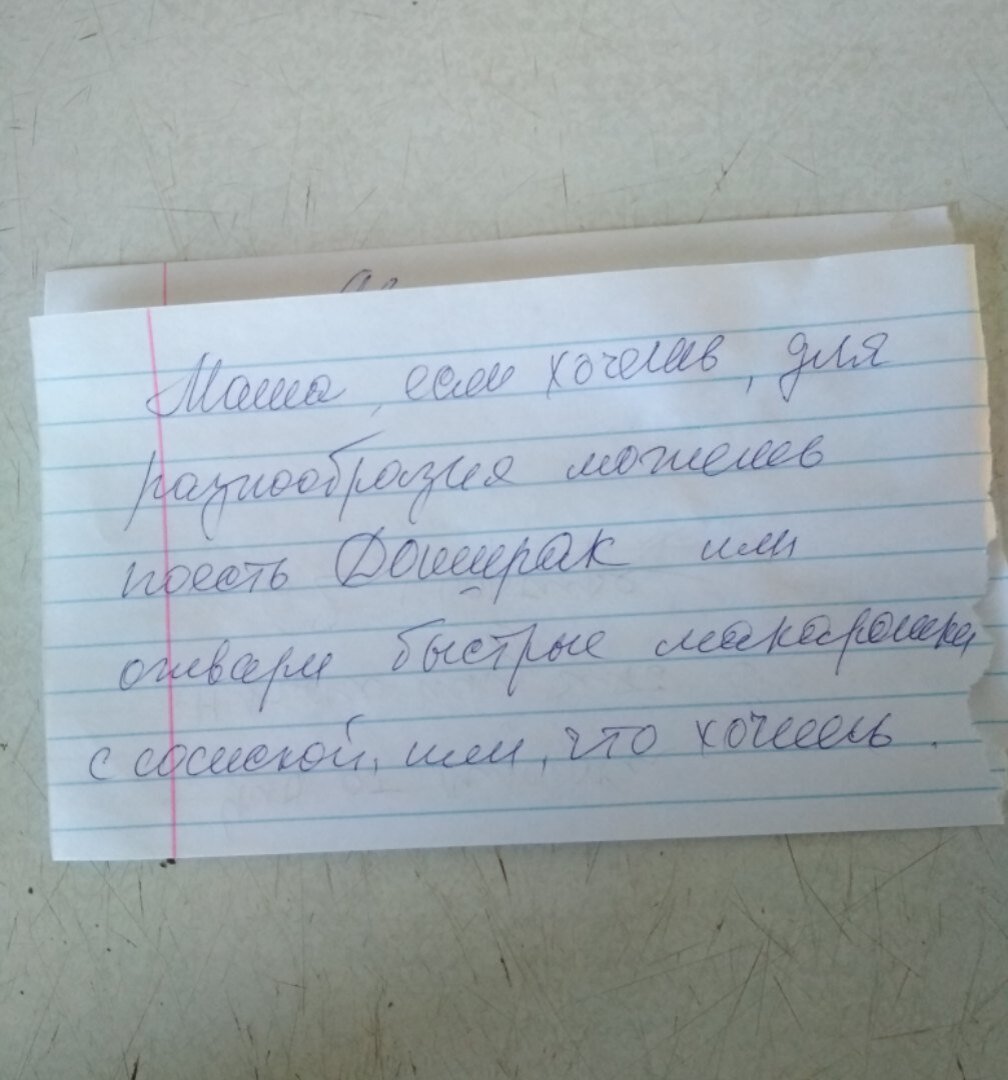 Маша, если хочешь, для
разнообразия можешь
поесть Доширак или
отвари быстрые макарошки
с сосиской, или, что хочешь.